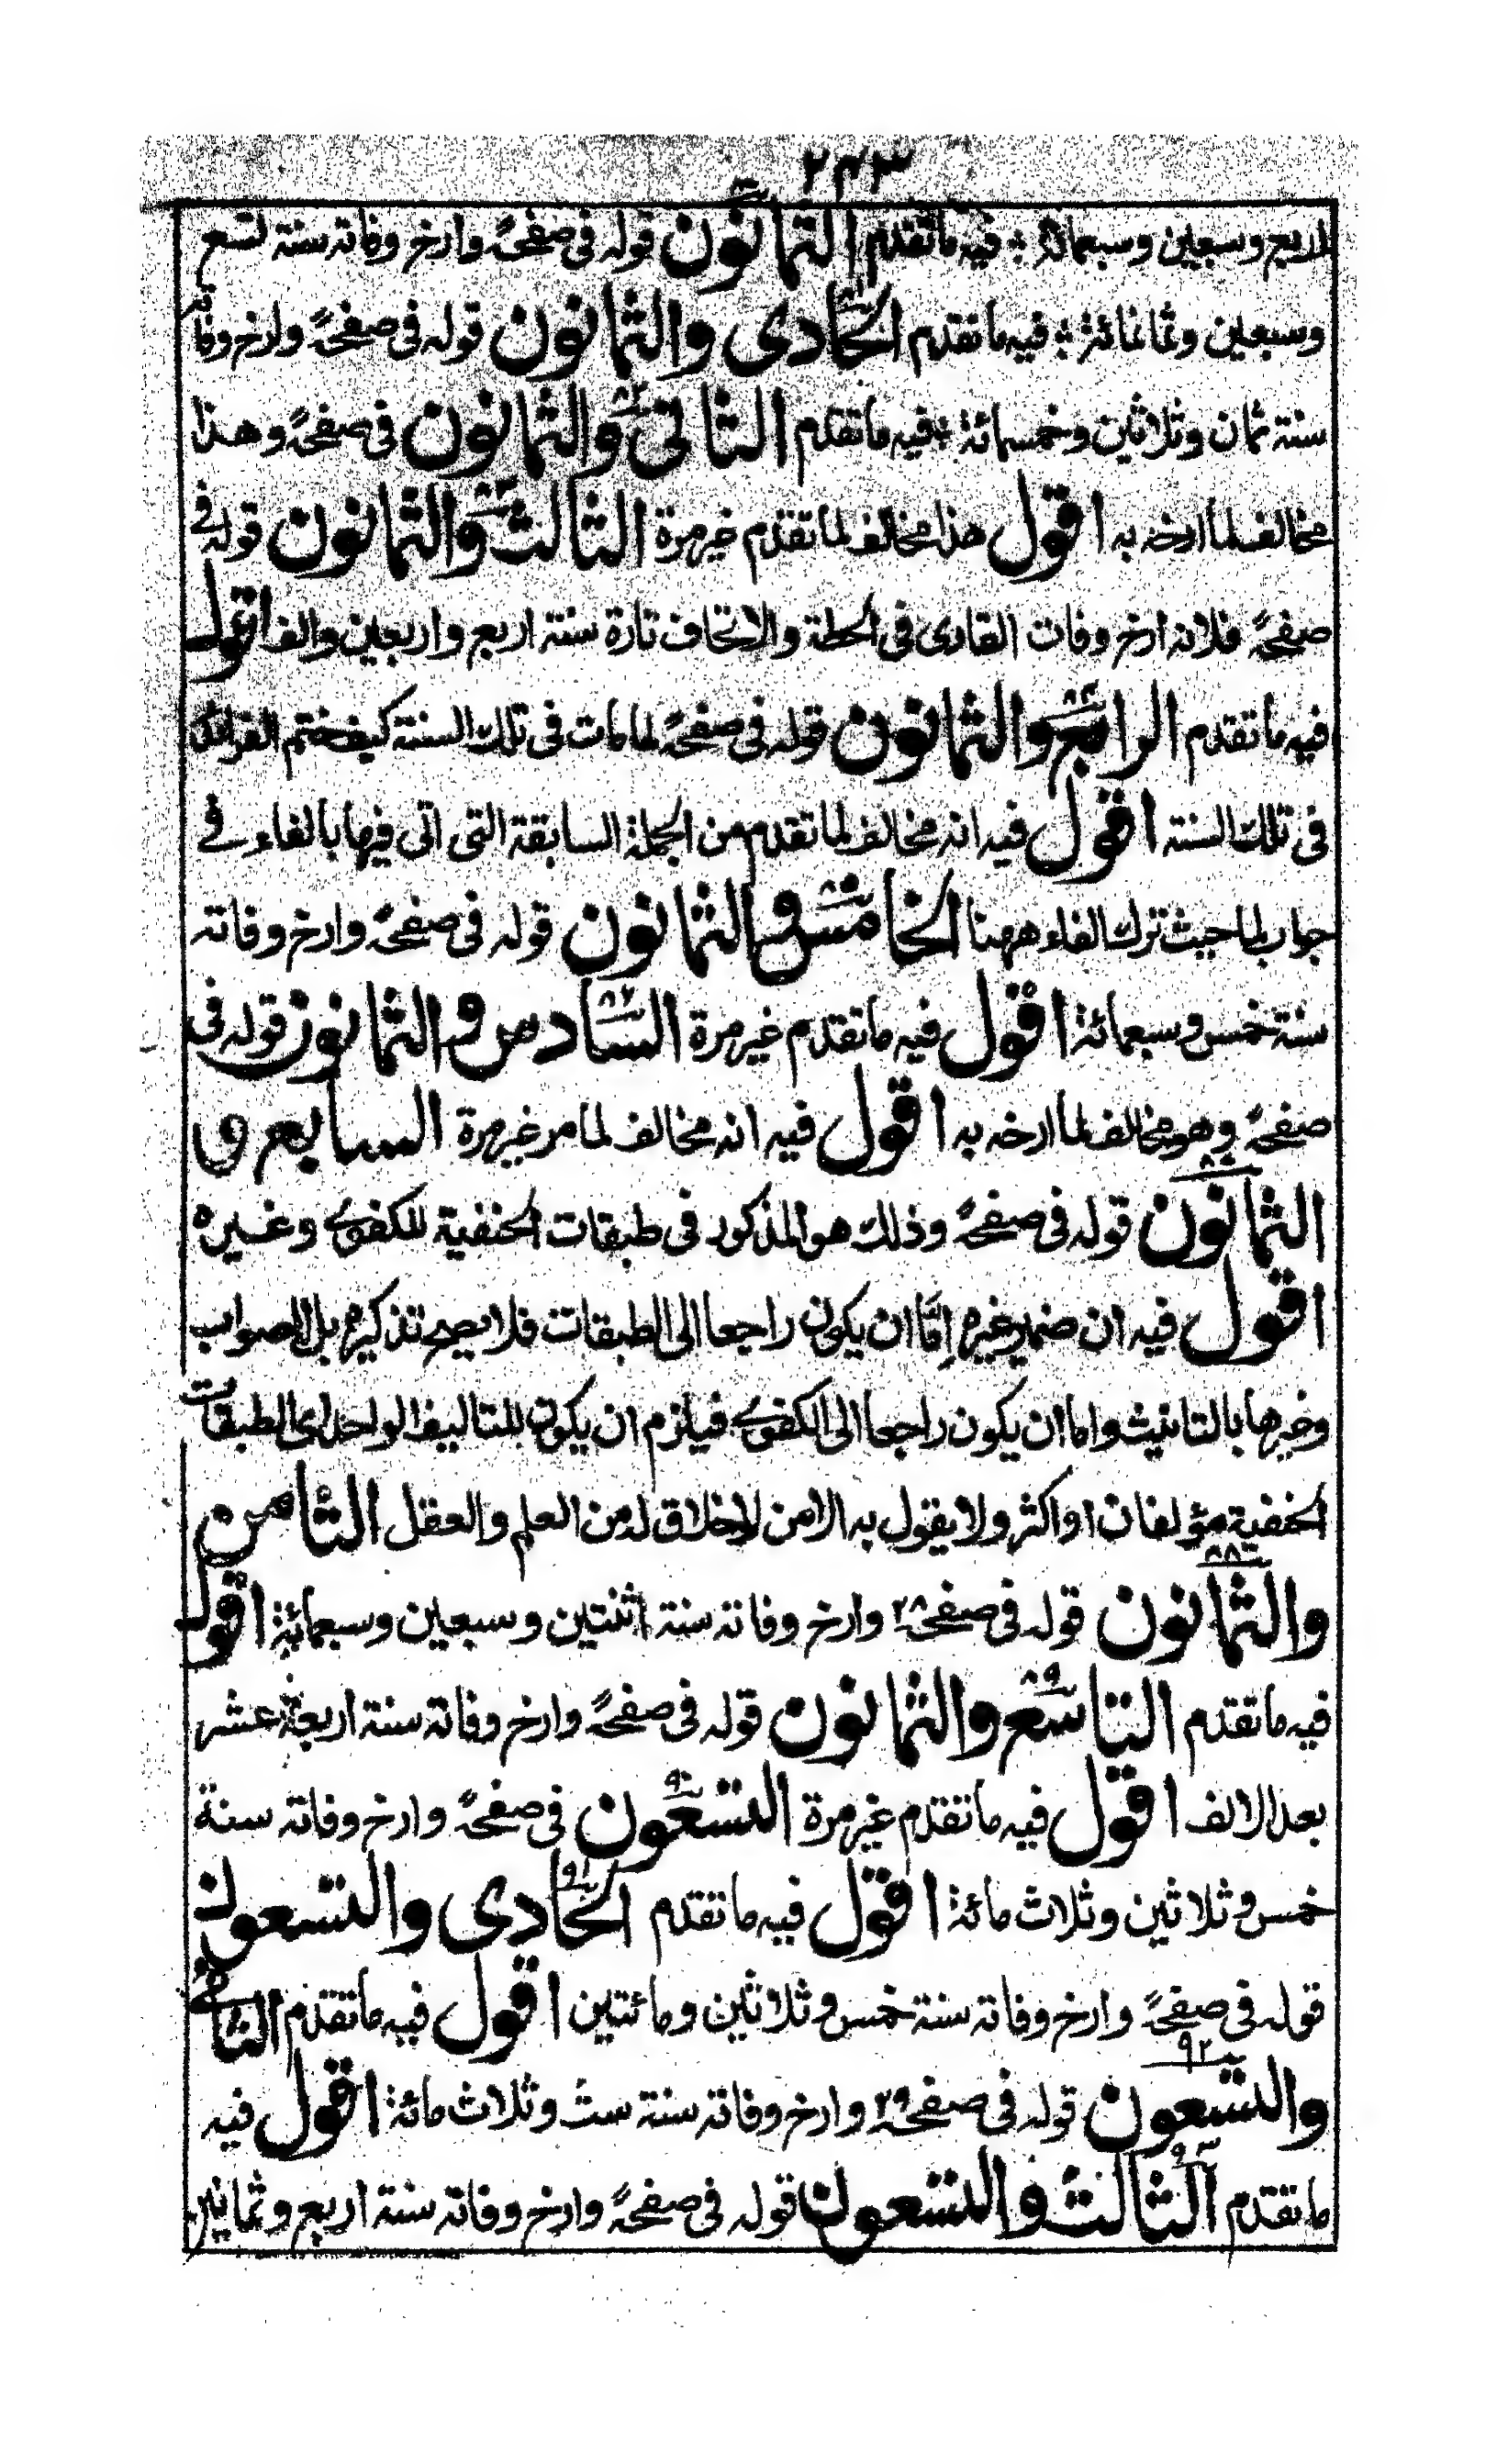 ٢٤٣
اربع وسبعين وسبعمائة ؛ فيه ماتقدم الثمانون قوله في صفحة وارخ وفاته سنة تسع
وسبعين وثمانمائة ؛ فيه ماتقدم الحادى والثمانون قوله فى صفحة وارخ وفاته
سنة ثمان وثلاثين وخمسمائة ؛ فيه ماتقدم الثاني والثمانون فى صفحة وهذا
مخالف لما ارخه به اقول هذا مخالف لما تقدم غير مرة الثالث والثمانون قوله في
صفحة فلانه ارخ وفات القارى فى الحطة والاتحاف تارة سنة اربع واربعين والف اقول
فيه ما تقدم الرابع والثمانون قوله فى صفحة لما مات فى تلك السنة كيف ختم
فى تلك السنة اقول فيه انه مخالف لما تقدم من الجملة السابقة التى اتى فيها بالفاء في
جواب لما حيث ترك الفاء ههنا الخامس والثمانون قوله فى صفحة وارخ وفاته
سنة خمس وسبعمائة اقول فيه ماتقدم غير مرة السادس والثمانون قوله فى
صفحة وهو مخالف لما ارخه به اقول فيه انه مخالف لما مر غير مرة السابع و
٨٧
الثمانون قوله فى صفحة وذلك هو المذكور فى طبقات الحنفية للكفوي وغيره
اقول فيه ان ضمير غيره اِمَّا ان يكون راجعا الى الطبقات فلا يصح تذكيره بل الصواب
وغيرها بالتانيث واما ان يكون راجعا الى الكفوي فيلزم ان يكون للتاليف الواحد اى الطبقات
الحنفية مؤلفان او اكثر ولا يقول به الا من لا خلاق له من العلم والعقل الثامن
٨٨
والثمانون قوله فى صفحة ٢٨ وارخ وفاته سنة اثنتين وسبعين وسبعمائة اقول
فيه ما تقدم التاسع والثمانون قوله فى صفحة وارخ وفاته سنة اربعة عشر
بعد الالف اقول فيه ما تقدم غير مرة التسعون فى صفحة وارخ وفاته سنة
خمس وثلاثين وثلاث مائة اقول فيه ما تقدم الحادى والتسعون
قوله فى صفحة وارخ وفاته سنة خمس وثلاثين ومائتين اقول فيه ما تقدم الثاني
٩٢
والتسعون قوله فى صفحة ٢٩ وارخ وفاته سنة ست وثلاث مائة اقول فيه
ما تقدم الثالث والتسعون قوله فى صفحة وارخ وفاته سنة اربع وثمانين